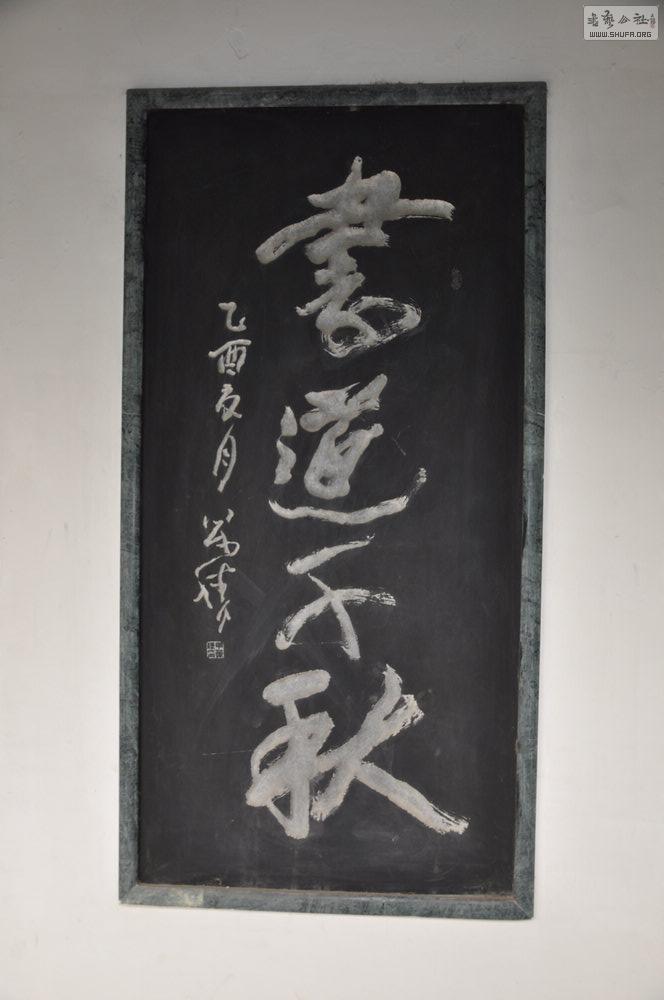 書道千秋
乙酉夏月
书艺公社
WWW.SHUFA.ORG